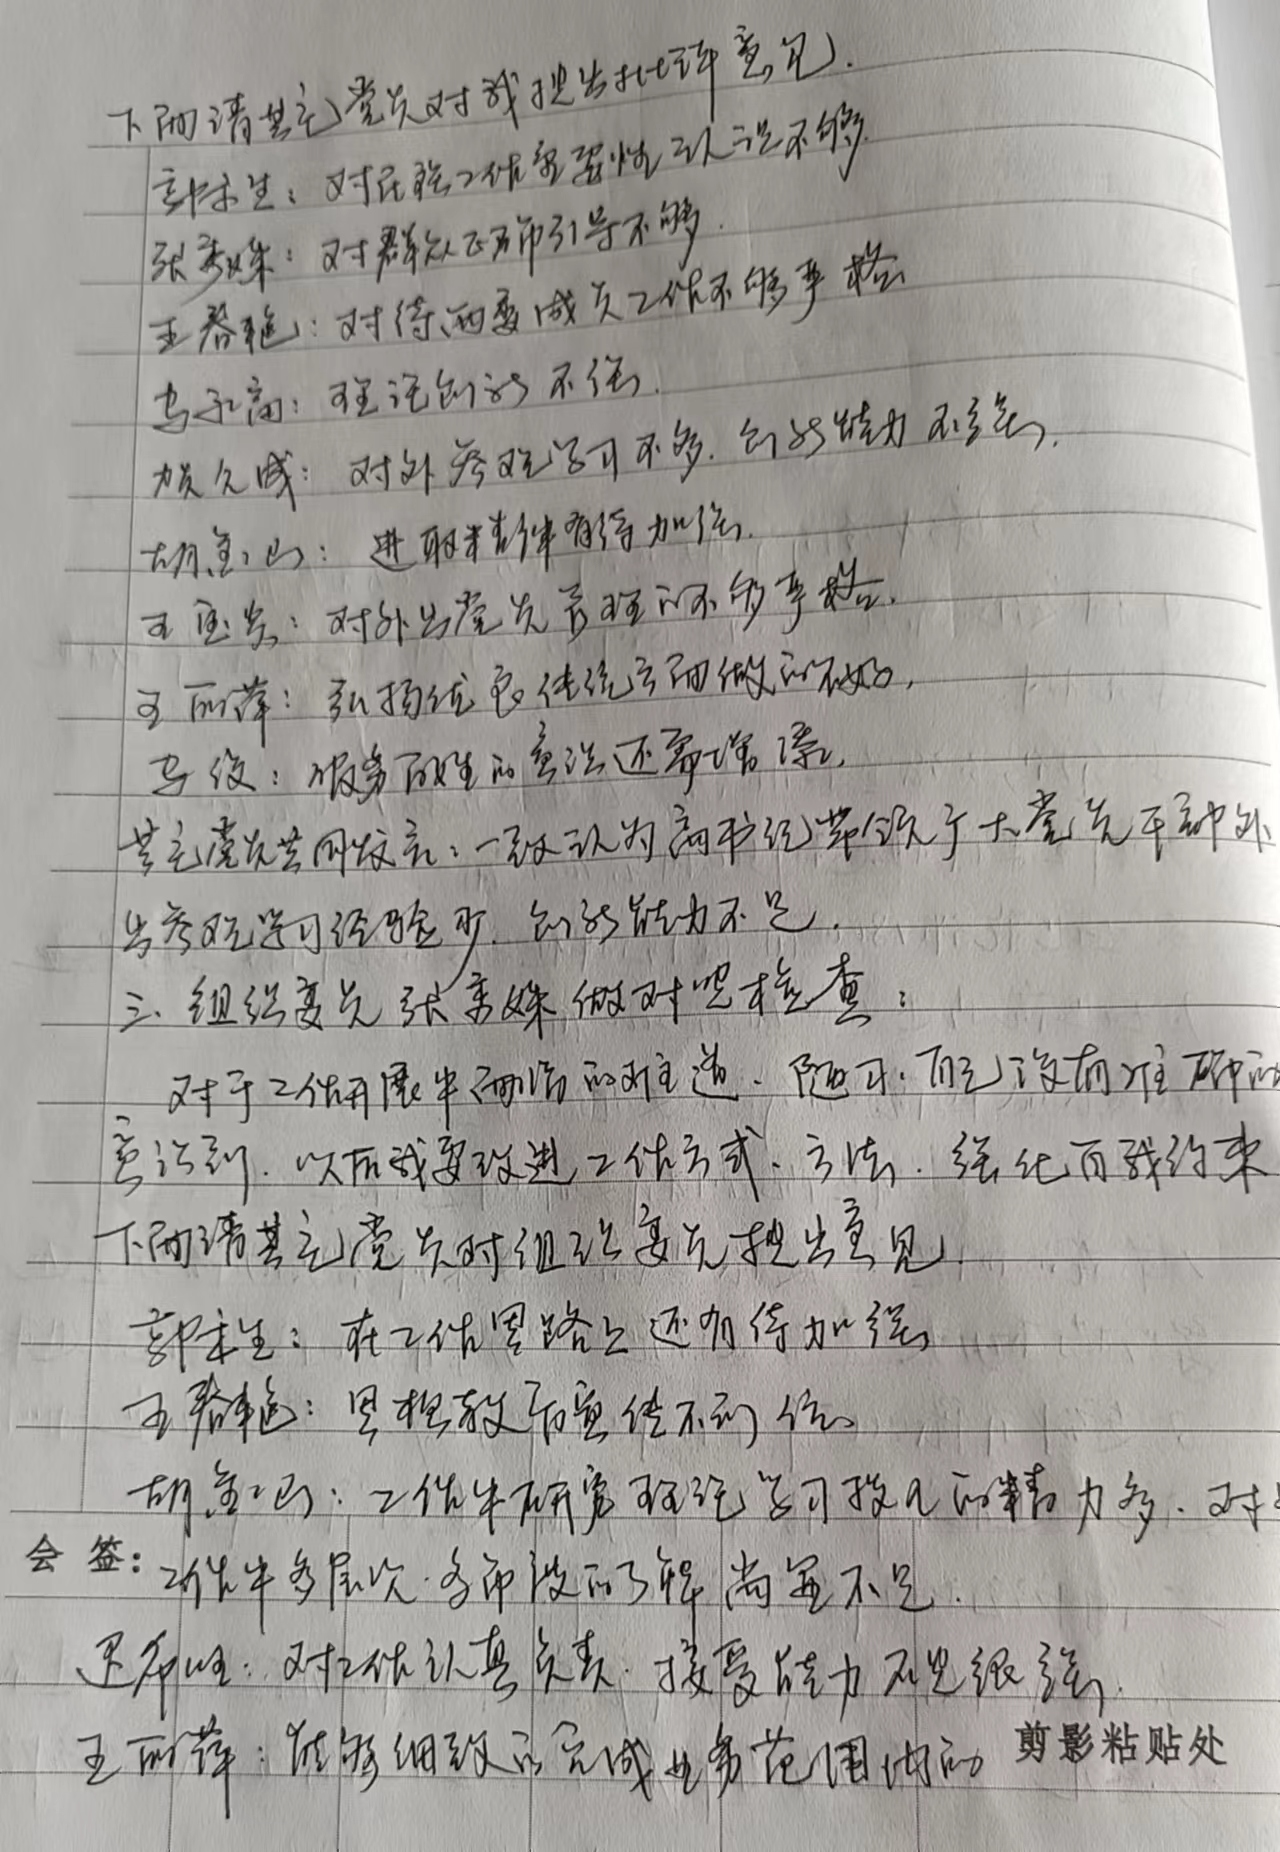 下面请其它党员对我提出批评意见.
郭来生：对民族工作重要性认识不够.
张秀姝：对群众正面引导不够.
王春艳：对待两委成员工作不够严格
马永富：理论创新不强.
贺久成：对外参观学习不多.创新能力不强.
胡金山：进取精神有待加强.
王宝贵：对外出党员管理的不够严格.
王丽萍：弘扬优良传统方面做的不好.
马俊：服务百姓的意识还需增强.
其它党员共同发言：一致认为高书记带领广大党员干部外
出参观学习经验少.创新能力不足.
三、组织委员张秀姝做对照检查：
对于工作开展中面临的难道、陋习.自己没有准确的
意识到.以后我要改进工作方式、方法.强化自我约束
下面请其它党员对组织委员提出意见.
郭来生：在工作思路上还有待加强
王春艳：思想教育宣传不到位.
胡金山：工作中研究理论学习投入的精力多.对
会 签：
工作中多层次.多角度的了解尚显不足.
对工作认真负责.接受能力不是很强.
王丽萍：能够细致的完成业务范围内的
剪影粘贴处